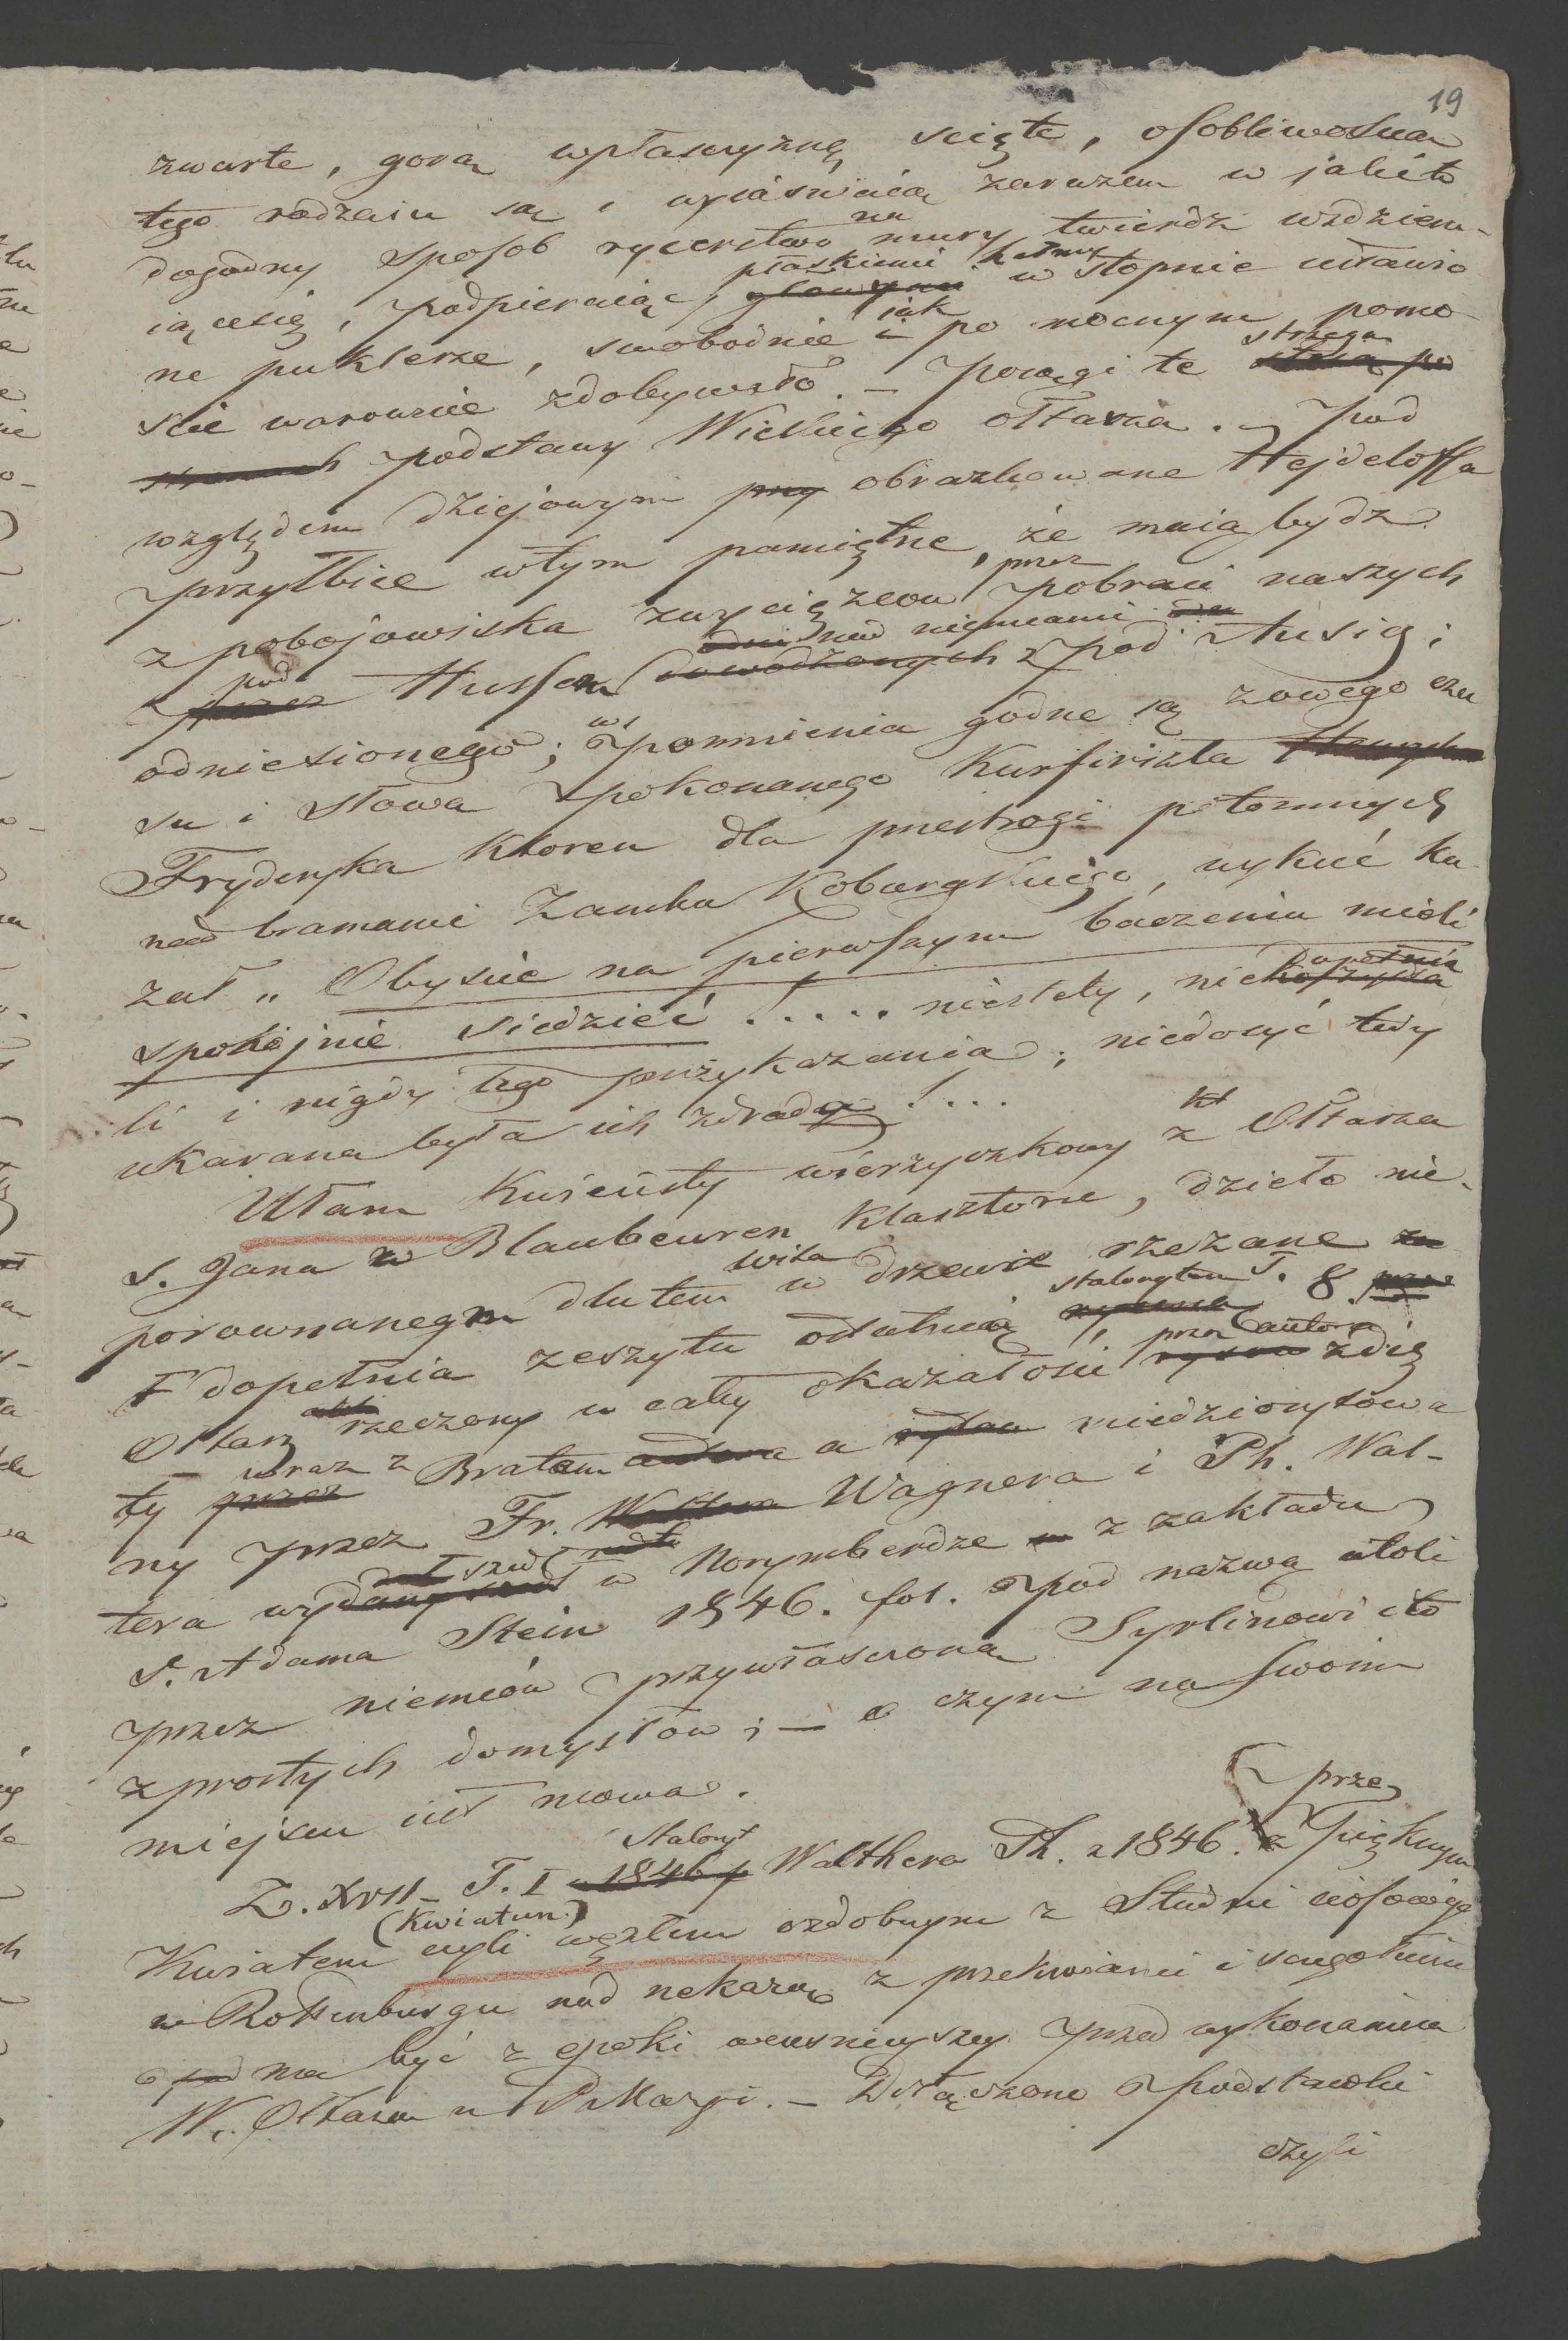 19
zwarte, gorą wpłasczyznę ścięte, osobliwością
tego rodzaiu są i wyiaśniaią zarazem w jakito
dogodny sposob rycerstwo na mury twierdz wsdziera-
iące się, podpieraiąc płaskiemi hełmy w stopnie ustawio
ne puklerze, swobodnie jak i po mocnym pomo-
ście warownie zdobywało. – Posągi te strzegą
podstawy Wielkiego ołtarza. – Pod
względem dziejowym obrazkowane Hejdeloffa
przyłbice wtym pamiętne, że maią bydz
z pobojowiska zwycięzcow przez pobraci naszych
pod Hussem nad niemcami pod Ausig;
odniesionego; wspomnienia godne są zowego cza
su i słowa pokonanego Kurfirszta
Fryderyka ktoren dla przestrogi potomnych
nad bramami Zamku Koburgskiego, wykuć ka-
zał „ Obyście na pierwszym baczeniu mieli
spokojnie siedzieć !..... niestety, niedopełnia
li i nigdy tego przykazania; niedosyć tedy
ukarana była ich zdrada !....
Ułam Kwiecisty wierzyczkowy z Ołtarza
S. Jana w Blaubeuren Klasztorze, dzieło nie-
porownanego dlutem w drzewie rzezane
dopełnia zeszytu ostatnią stalorytem T. 8.
Ołtarz rzeczony w całej okazałości przez autora zdię
ty wraz z Bratem a miedziorytowa
ny przez Fr. Wagnera i Ph. Wal-
tera wyszedł w Norymberdze z zakładu
S. Adama Stein 1846. fol. pod nazwą atoli
przez niemców przywłasczoną Syrlinowi i to
z prostych domysłow; – o czym na swoim
miejscu iest mowa.
Z. XVII – T. I – Staloryt Walthera Ph. z 1846. z przepięknym
Kwiatem (Kwiatun.) czyli węzłem ozdobnym z Studni ciosowéj
w Rottenburgu nad nekarem z przekroiami i szczegołami
ma być z epoki wcześniejszey przed wykonaniem
W. Ołtarza u P Maryi. – Dołączono podstawki
czyli